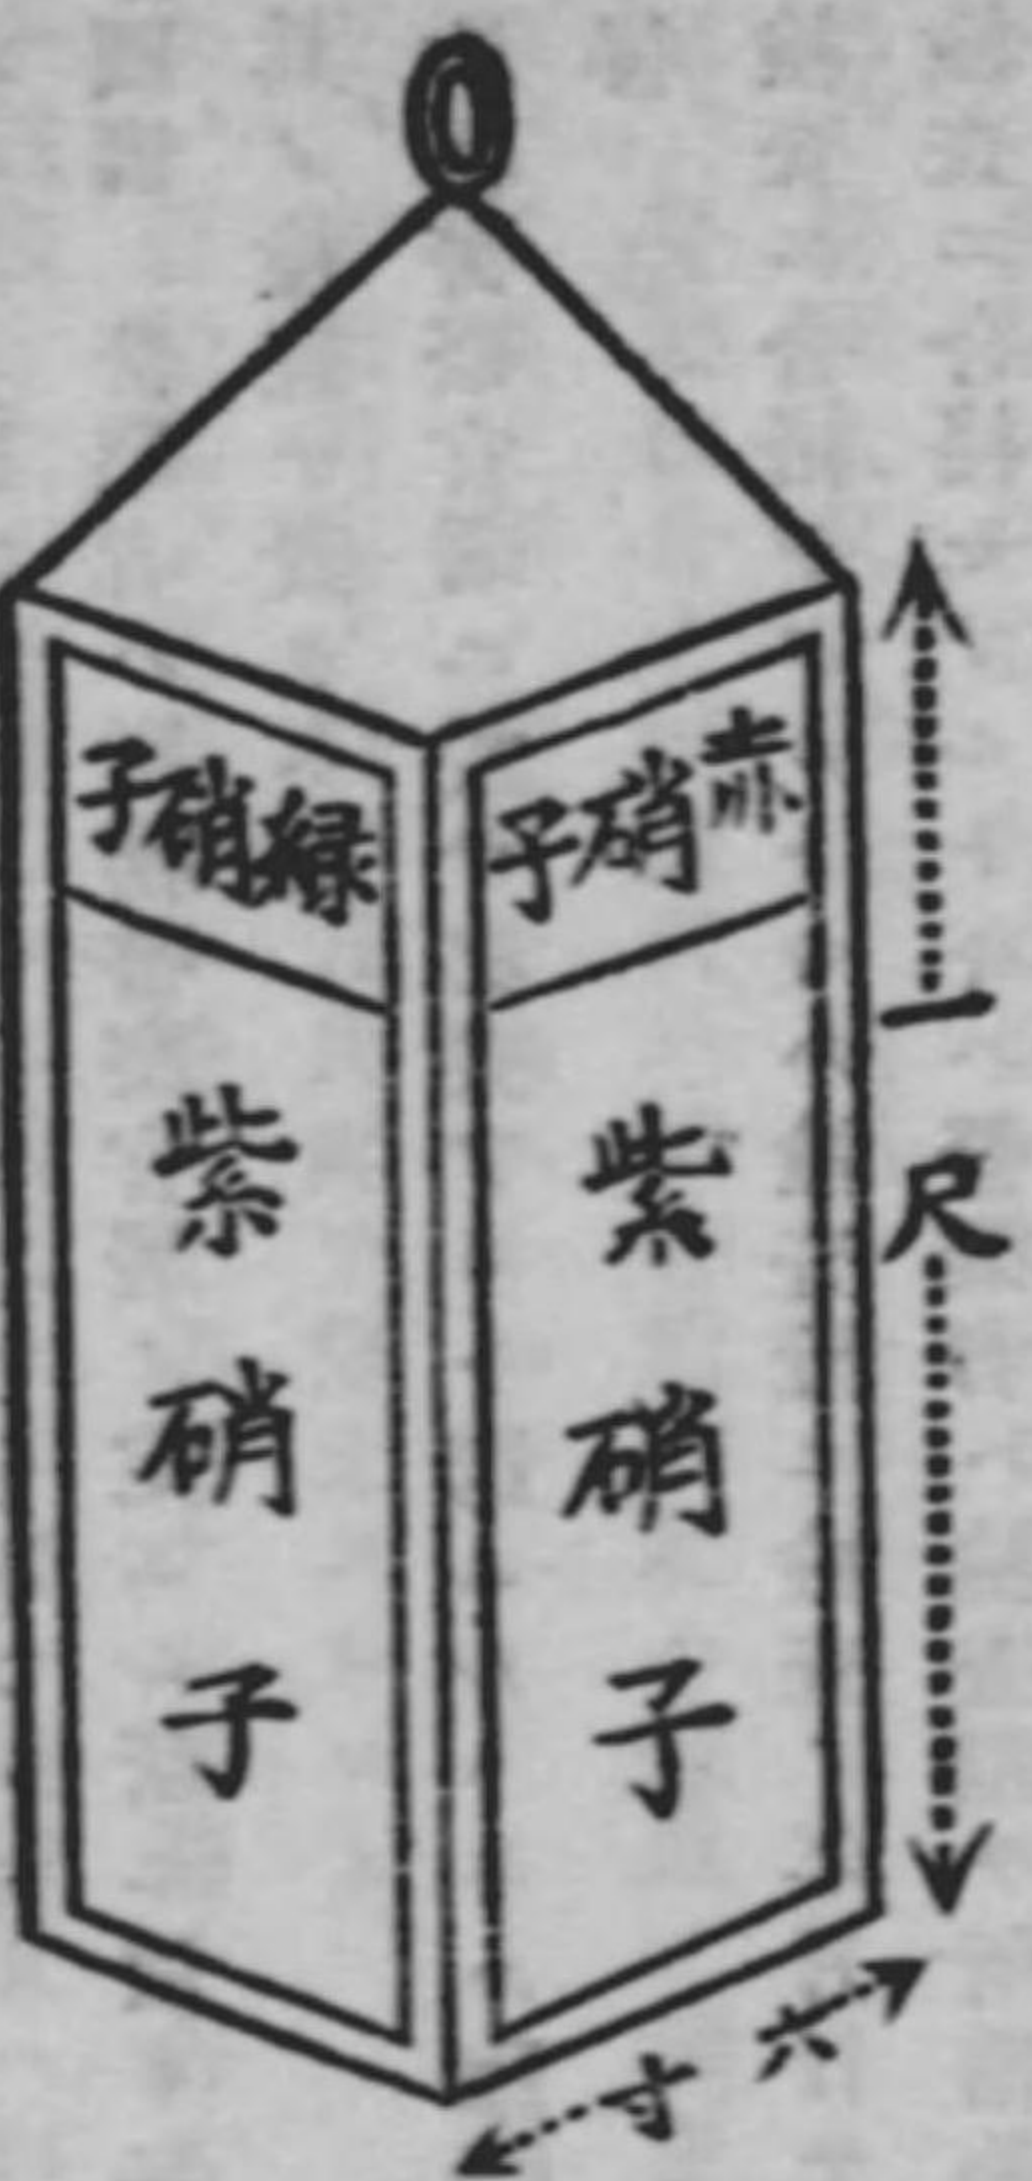 赤硝子
緑硝子
紫硝子
紫硝子
一尺
六寸